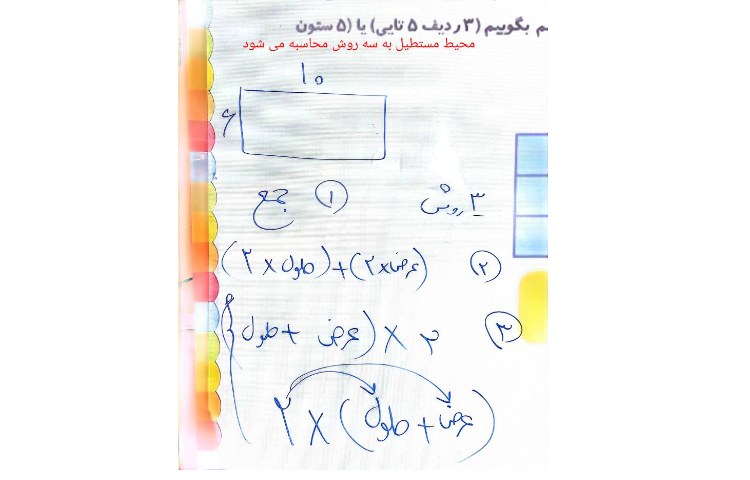 م بگوییم (۳ ردیف ۵ تایی) یا (۵ ستون
محیط مستطیل به سه روش محاسبه می شود
۱۰
۶
۳ روش ① جمع
② (عرض×۲)+(طول×۲)
③ ۲ × (عرض + طول)
۲ × (طول + عرض)